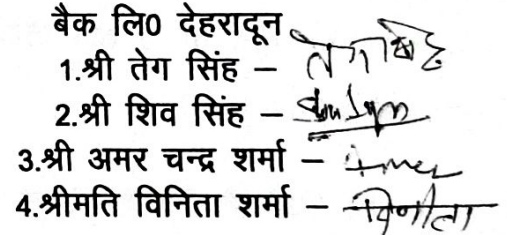 बैक लि0 देहरादून
1.श्री तेग सिंह – तेग सिंह
2.श्री शिव सिंह –
3.श्री अमर चन्द्र शर्मा –
4.श्रीमति विनिता शर्मा – विनीता